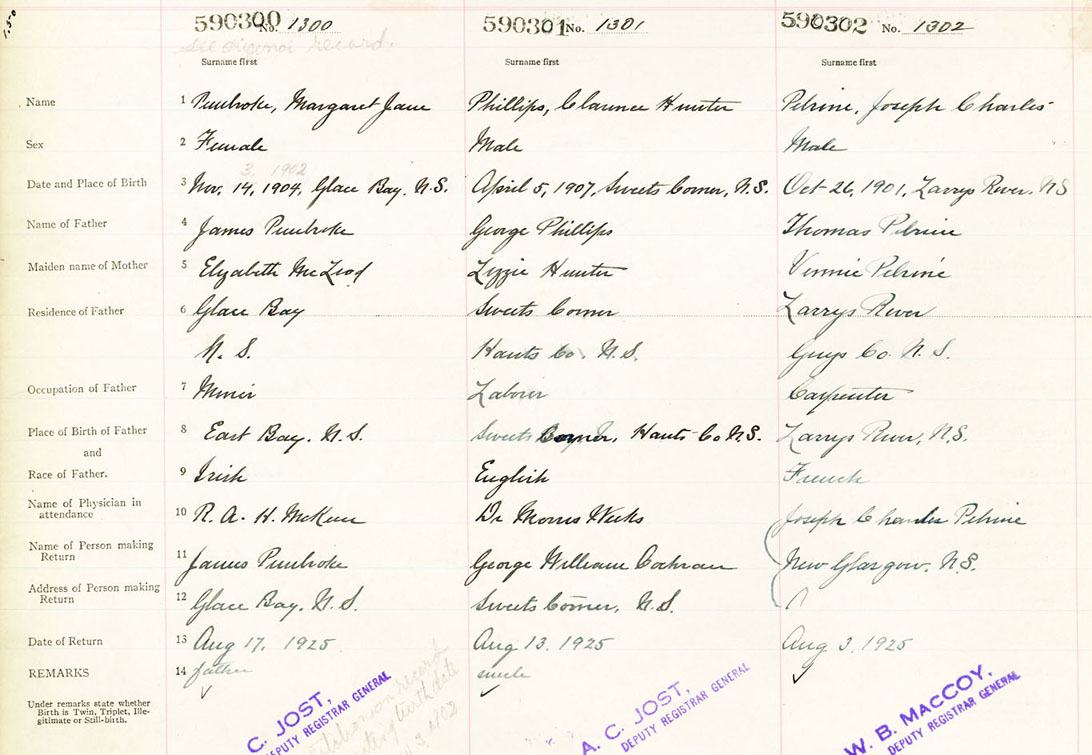 590300 No. 1300 590301 No. 1301 590302 No. 1302
see original record.
Surname first Surname first Surname first
Name 1 Pembroke, Margaret Jane Phillips, Clarence Hunter Petrine, Joseph Charles
Sex 2 Female Male Male
3, 1902
Date and Place of Birth 3 Nov. 14, 1904, Glace Bay, N.S. April 5, 1907, Sweets Corner, N.S. Oct 26, 1901, Larrys River, NS
Name of Father 4 James Pembroke George Phillips Thomas Petrine
Maiden name of Mother 5 Elizabeth McLeod Lizzie Hunter Vennie Petrine
Residence of Father 6 Glace Bay Sweets Corner Larrys River
N. S. Hants Co. N.S. Guys Co. N. S.
Occupation of Father 7 Miner Laborer Carpenter
Place of Birth of Father 8 East Bay, N. S. Sweets Corner, Hants Co N.S. Larrys River, N.S.
and
Race of Father. 9 Irish English French
Name of Physician in
attendance 10 R. A. H. McKeen Dr Morris Weeks Joseph Charles Petrine
Name of Person making
Return 11 James Pembroke George William Cochran New Glasgow, N.S.
Address of Person making
Return 12 Glace Bay, N. S. Sweets Corner, N.S.
Date of Return 13 Aug 17, 1925 Aug 13, 1925 Aug 3, 1925
REMARKS 14 father uncle
Under remarks state whether
Birth is Twin, Triplet, Ille-
gitimate or Still-birth.
C. JOST,
DEPUTY REGISTRAR GENERAL
record
birth date
3, 1902
A. C. JOST,
DEPUTY REGISTRAR GENERAL
W. B. MACCOY,
DEPUTY REGISTRAR GENERAL